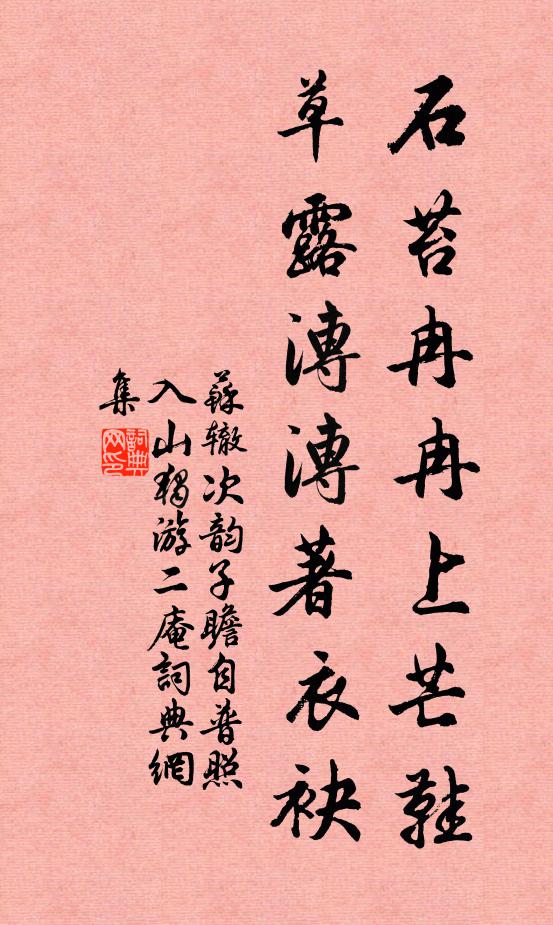 石苔冉冉上芒鞋
草露漙漙著衣袂
蘇辙次韵子瞻自普照
入山独游二庵詞典網
集
詞典
网印